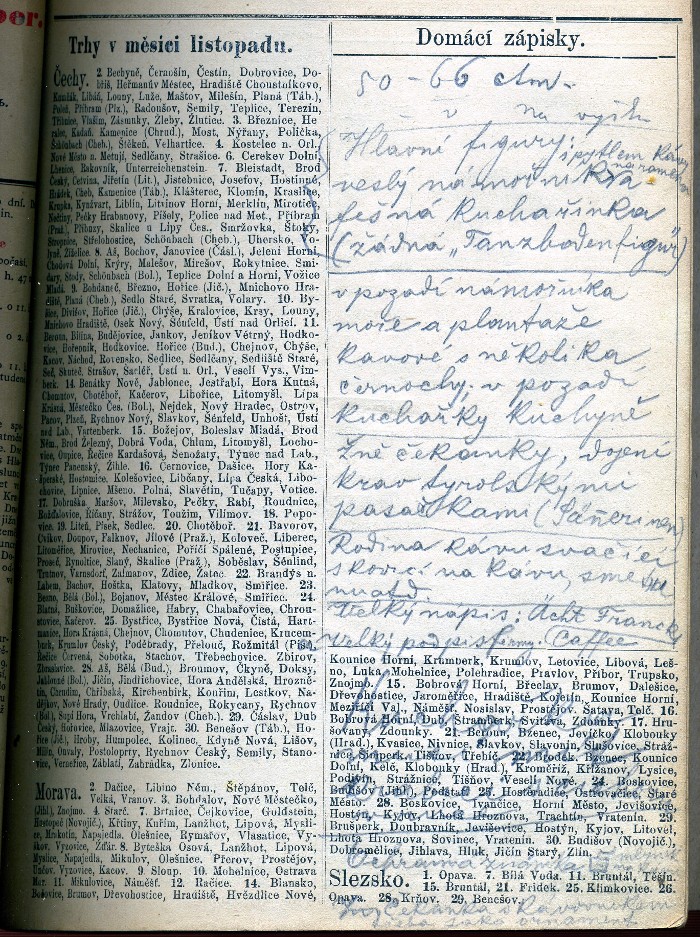 Trhy v měsíci listopadu.
Čechy. 2. Bechyně, Černošín, Čestín, Dobrovice, Do-
bříš, Heřmanův Městec, Hradiště Choustníkovo,
Kamžík, Libáň, Louny, Luže, Maštov, Milešín, Planá (Táb.),
Poleň, Příbram (Plz.), Radoušov, Semily, Teplice, Terezín,
Třtěnice, Vlašim, Zásmuky, Žleby, Žlutice. 3. Březnice, He-
ralec, Kadaň, Kamenice (Chrud.), Most, Nýřany, Polička,
Schönbach (Cheb.), Štěkeň, Velhartice. 4. Kostelec n. Orl.,
Nové Město n. Metují, Sedlčany, Strašice. 6. Cerekev Dolní,
Libenice, Rakovník, Unterreichenstein. 7. Bleistadt, Brod
Český, Cetvina, Jiřetín (Lit.), Jistebnice, Josefov, Hostinné,
Hrádek, Cheb, Kamenice (Táb.), Klášterec, Klomín, Kraslice,
Krupka, Kynžvart, Liblín, Litvínov Horní, Merklín, Mirotice,
Nečtiny, Pečky Hrabanovy, Písely, Police nad Met., Příbram
(Pra.), Příbuzy, Skalice u Lípy Čes., Smržovka, Štoky,
Stropnice, Střelohostice, Schönbach (Cheb.), Uhersko, Vo-
lyně, Židlice. 8. Aš, Bochov, Janovice (Čásl.), Jelení Horní,
Chodová Dolní, Krýry, Malešov, Mirešov, Rokytnice, Smi-
dary, Štody, Schönbach (Bol.), Teplice Dolní a Horní, Vožice
Mladá. 9. Bohdaneč, Březno, Hořice (Jič.), Mnichovo Hra-
diště, Planá (Cheb.), Sedlo Staré, Svratka, Volary. 10. By-
šice, Divišov, Hořice (Jič.), Chýše, Kralovice, Krsy, Louny,
Mnichovo Hradiště, Osek Nový, Šénfeld, Ústí nad Orlicí. 11.
Beroun, Bílina, Budějovice, Jankov, Jeníkov Větrný, Hodko-
vice, Bořenník, Hodkovice. Hořice (Bud.), Chejnov, Chýše,
Kacov, Náchod, Rovensko, Sedlice, Sedlčany, Sedliště Staré,
Seč, Skuteč. Strašov, Sacléř, Ústí n. Orl., Veselí Vys., Vim-
berk. 14. Benátky Nové, Jablonec, Jestřabí, Hora Kutná,
Chomutov, Chotěboř, Kačerov, Libořice, Litomyšl, Lípa
Krásná, Městečko Čes. (Bol.), Nejdek, Nový Hradec, Ostrov,
Pacov, Plzeň, Rychnov Nový, Slavkov, Šénfeld, Unhošť, Ústí
nad Lab., Vartenberk. 15. Božejov, Boleslav Mladá, Brod
Něm., Brod Železný, Dobrá Voda, Chlum, Litomyšl, Locho-
vice, Oupice, Řečice Kardašová, Senožaty, Týnec nad Lab.,
Týnec Panenský, Žihle. 16. Černovice, Dašice, Hory Ka-
šperské, Hostomice, Kolešovice, Libčany, Lípa Česká, Libo-
chovice, Lipnice, Mšeno, Polná, Slavětín, Tučapy, Votice.
17. Dobruška, Maršov, Milevsko, Pečky, Rabí, Roudnice,
Rožďalovice, Říčany, Strážov, Toužim, Vilímov. 18. Popo-
vice. 19. Liteň, Písek, Sedlec. 20. Chotěboř. 21. Bavorov,
Cvikov, Doupov, Falknov, Jílové (Praž.), Koloveč, Liberec,
Litoměřice, Mirovice, Nechanice, Poříčí Spálené, Postupice,
Proseč, Rynoltice, Slaný, Skalice (Praž.), Soběslav, Šénlind,
Trutnov, Varnsdorf, Zalmanov, Zdice, Žatec. 22. Brandýs n.
Labem, Bochov, Hoštka, Klatovy, Mladkov, Smiřice. 23.
Bezno, Bělá (Bol.), Bojanov, Městec Králové, Smiřice. 24.
Blatná, Buškovice, Domažlice, Habry, Chabařovice, Chrou-
stovice, Kaferov. 25. Bystřice, Bystřice Nová, Čistá, Hart-
manice, Hora Krásná, Chejnov, Chomutov, Chudenice, Krucem-
burk, Krumlov Český, Poděbrady, Přelouč, Rožmitál (Pís.),
Řečice Červená, Sobotka, Stachov, Třebechovice. Zbirov,
Zbraslavice. 28. Aš, Bělá (Bud.), Broumov, Čkyně, Doksy,
Jablonné (Bol.), Jičín, Jindřichovice, Hora Andělská, Hrozně-
tín, Chrudim, Chříbská, Kirchenbirk, Konřim, Lestkov, Na-
dějkov, Nové Hrady, Oudlice, Roudnice, Rokycany, Rychnov
(Bol.), Supí Hora, Vrchlabí, Žandov (Cheb.). 29. Čáslav, Dub
Český, Holovice, Mlázovice, Vrajt. 30. Benešov (Táb.), Ho-
řice (Jič.), Hroby, Humpolec, Kolinec, Kdyně Nová, Lišov,
Mšín, Ouvaly, Postoloprty, Rychnov Český, Semily, Stano-
vice, Verneřice, Záblatí, Zahrádka, Zlonice.
Morava. 2. Dačice, Libino Něm., Štěpánov, Telč,
Velká, Vranov. 3. Bohdalov, Nové Městečko,
(Jihl.), Znojmo. 4. Strachy. 7. Brtnice, Čejkovice, Goldstein,
Hostopeč (Novojič.), Křtiny, Kuřim, Lanžhot, Lipová, Myslí-
ce, Mrákotín, Napajedla, Olešnice, Rymařov, Vlasatice, Vy-
škov, Vyzovice, Žďár. 8. Byteška Osová, Lanžhot, Lipová,
Myslice, Napajedla, Mikulov, Olešnice. Přerov, Prostějov,
Unčov, Vyzovice, Kacov. 9. Sloup. 10. Mohelnice, Ostrava
Mor. 11. Mikulovice, Náměšť. 12. Račice. 14. Blansko,
Boskovice, Brumov, Dřevohostice, Hradiště, Hvězdlice Nové,
Domácí zápisky.
50 - 66 ctm.
v na výši
Hlavní figury: i pytlem kávy
veslý námořník na rameně
fešná kuchařinka
(žádná „Tanzbodenfigur")
v pozadí námořníka
moře a plantaže
kavové s několika
černochy. v pozadí
kuchařky kuchyně
žně čekanky, dojení
krav tyrolskými
pasačkami (Sennerinen)
Rodina kávu svačící
skořicí na kávu, směs
Velký nápis: Ächt Franck
Velký podpis firmy. Caffee
Kounice Horní, Krumberk, Krumlov, Letovice, Libová, Leš-
no, Luká, Mohelnice, Polehradice, Pravlov, Příbor, Trupsko,
Znojmo. 15. Bobrová Horní, Břeclav, Brumov, Dalešice,
Dřevohostice, Jaroměřice, Hradiště, Kojetín, Kounice Horní,
Meziříčí Val., Náměšť, Nosislav, Prostějov, Šatava, Telč. 16.
Bobrová Horní, Dub, Štramberk, Svitava, Zdounky. 17. Hru-
šovany, Zdounky. 21. Beroun, Bzenec, Jevíčko, Klobouky
(Hrad.), Kvasice, Nivnice, Slavkov, Slavonín, Slušovice, Stráž-
nice, Šumperk, Tišňov, Třebíč. 22. Brodek, Bzenec, Kounice
Dolní, Kelč, Klobouky (Hrad.), Kroměříž, Křižanov, Lysice,
Podivín, Strážnice, Tišňov, Veselí Nové. 24. Boskovice,
Budišov (Jihl.), Podstatí. 25. Hostěradice, Ostrovačice, Staré
Město. 28. Boskovice, Ivančice, Horní Město, Jevišovice,
Hostýn, Kyjov, Lhota Hroznova, Trachtín, Vratenín. 29.
Brušperk, Doubravník, Jevišovice, Hostýn, Kyjov, Litovel,
Lhota Hroznova, Sovinec, Vratenín. 30. Budišov (Novojič.),
Dobromělice, Jihlava, Hluk, Jičín Starý, Zlín.
Slezsko. 1. Opava. 7. Bílá Voda. 11. Bruntál, Těšín.
15. Bruntál, 21. Fridek. 25. Klimkovice. 26.
Opava. 28. Krňov. 29. Benešov.